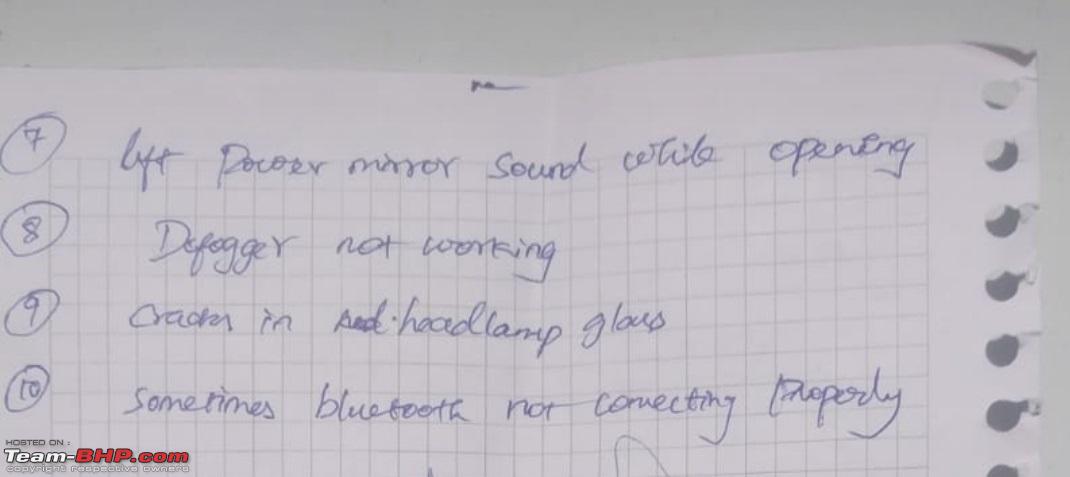 7 Left Power mirror sound while opening
8 Defogger not working
9 Cracks in headlamp glass
10 Sometimes bluetooth not connecting properly
HOSTED ON :
Team-BHP.com
copyright respective owners